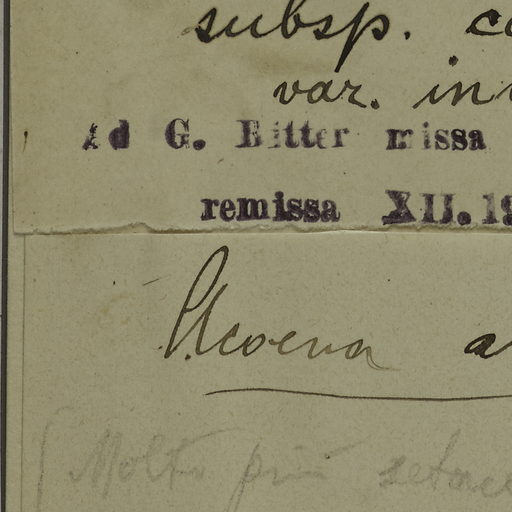 subsp. c
var. in
Ad G. Bitter missa
remissa XII. 19
Acaena a
(Molto più setace